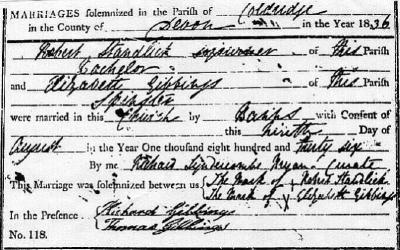 MARRIAGES solemnized in the Parish of Coldridge
in the County of Devon in the Year 1836
Robert Standlick sojourner of this Parish
Bachelor
and Elizabeth Gibbings of this Parish
Spinster
were married in this Church by Banns with Consent of
this Ninth Day of
August in the Year One thousand eight hundred and thirty six
By me Richard Bryan Curate
This Marriage was solemnized between us The Mark of X Robert Standlick
The Mark of X Elizabeth Gibbings
In the Presence Richard Gibbings
Thomas Gibbings
No. 118.